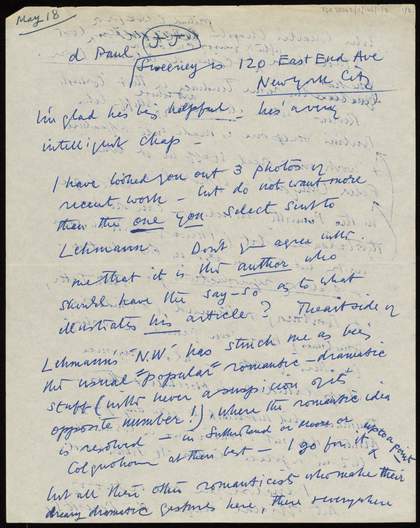 May 18
d Paul, J.J.
Sweeney is 120 East End Ave
New York City
I'm glad he's being helpful – he's a very
intelligent chap –
I have looked you out 3 photos of
recent work – but do not want more
than the one you select sent to
Lehmann. Don't you agree with
me that it is the author who
should have the say-so as to what
illustrates his article? The art side of
Lehmann's 'N.W' has struck me as being
the usual "Popular" romantic-dramatic
stuff (with never a suspicion of its
opposite number!), where the romantic idea
is resolved – in Sutherland or Moore, or up to a point
Colquhoun at their best – I go for it, &
but all these other romanticists who make their
dreary dramatic gestures here, there & everywhere